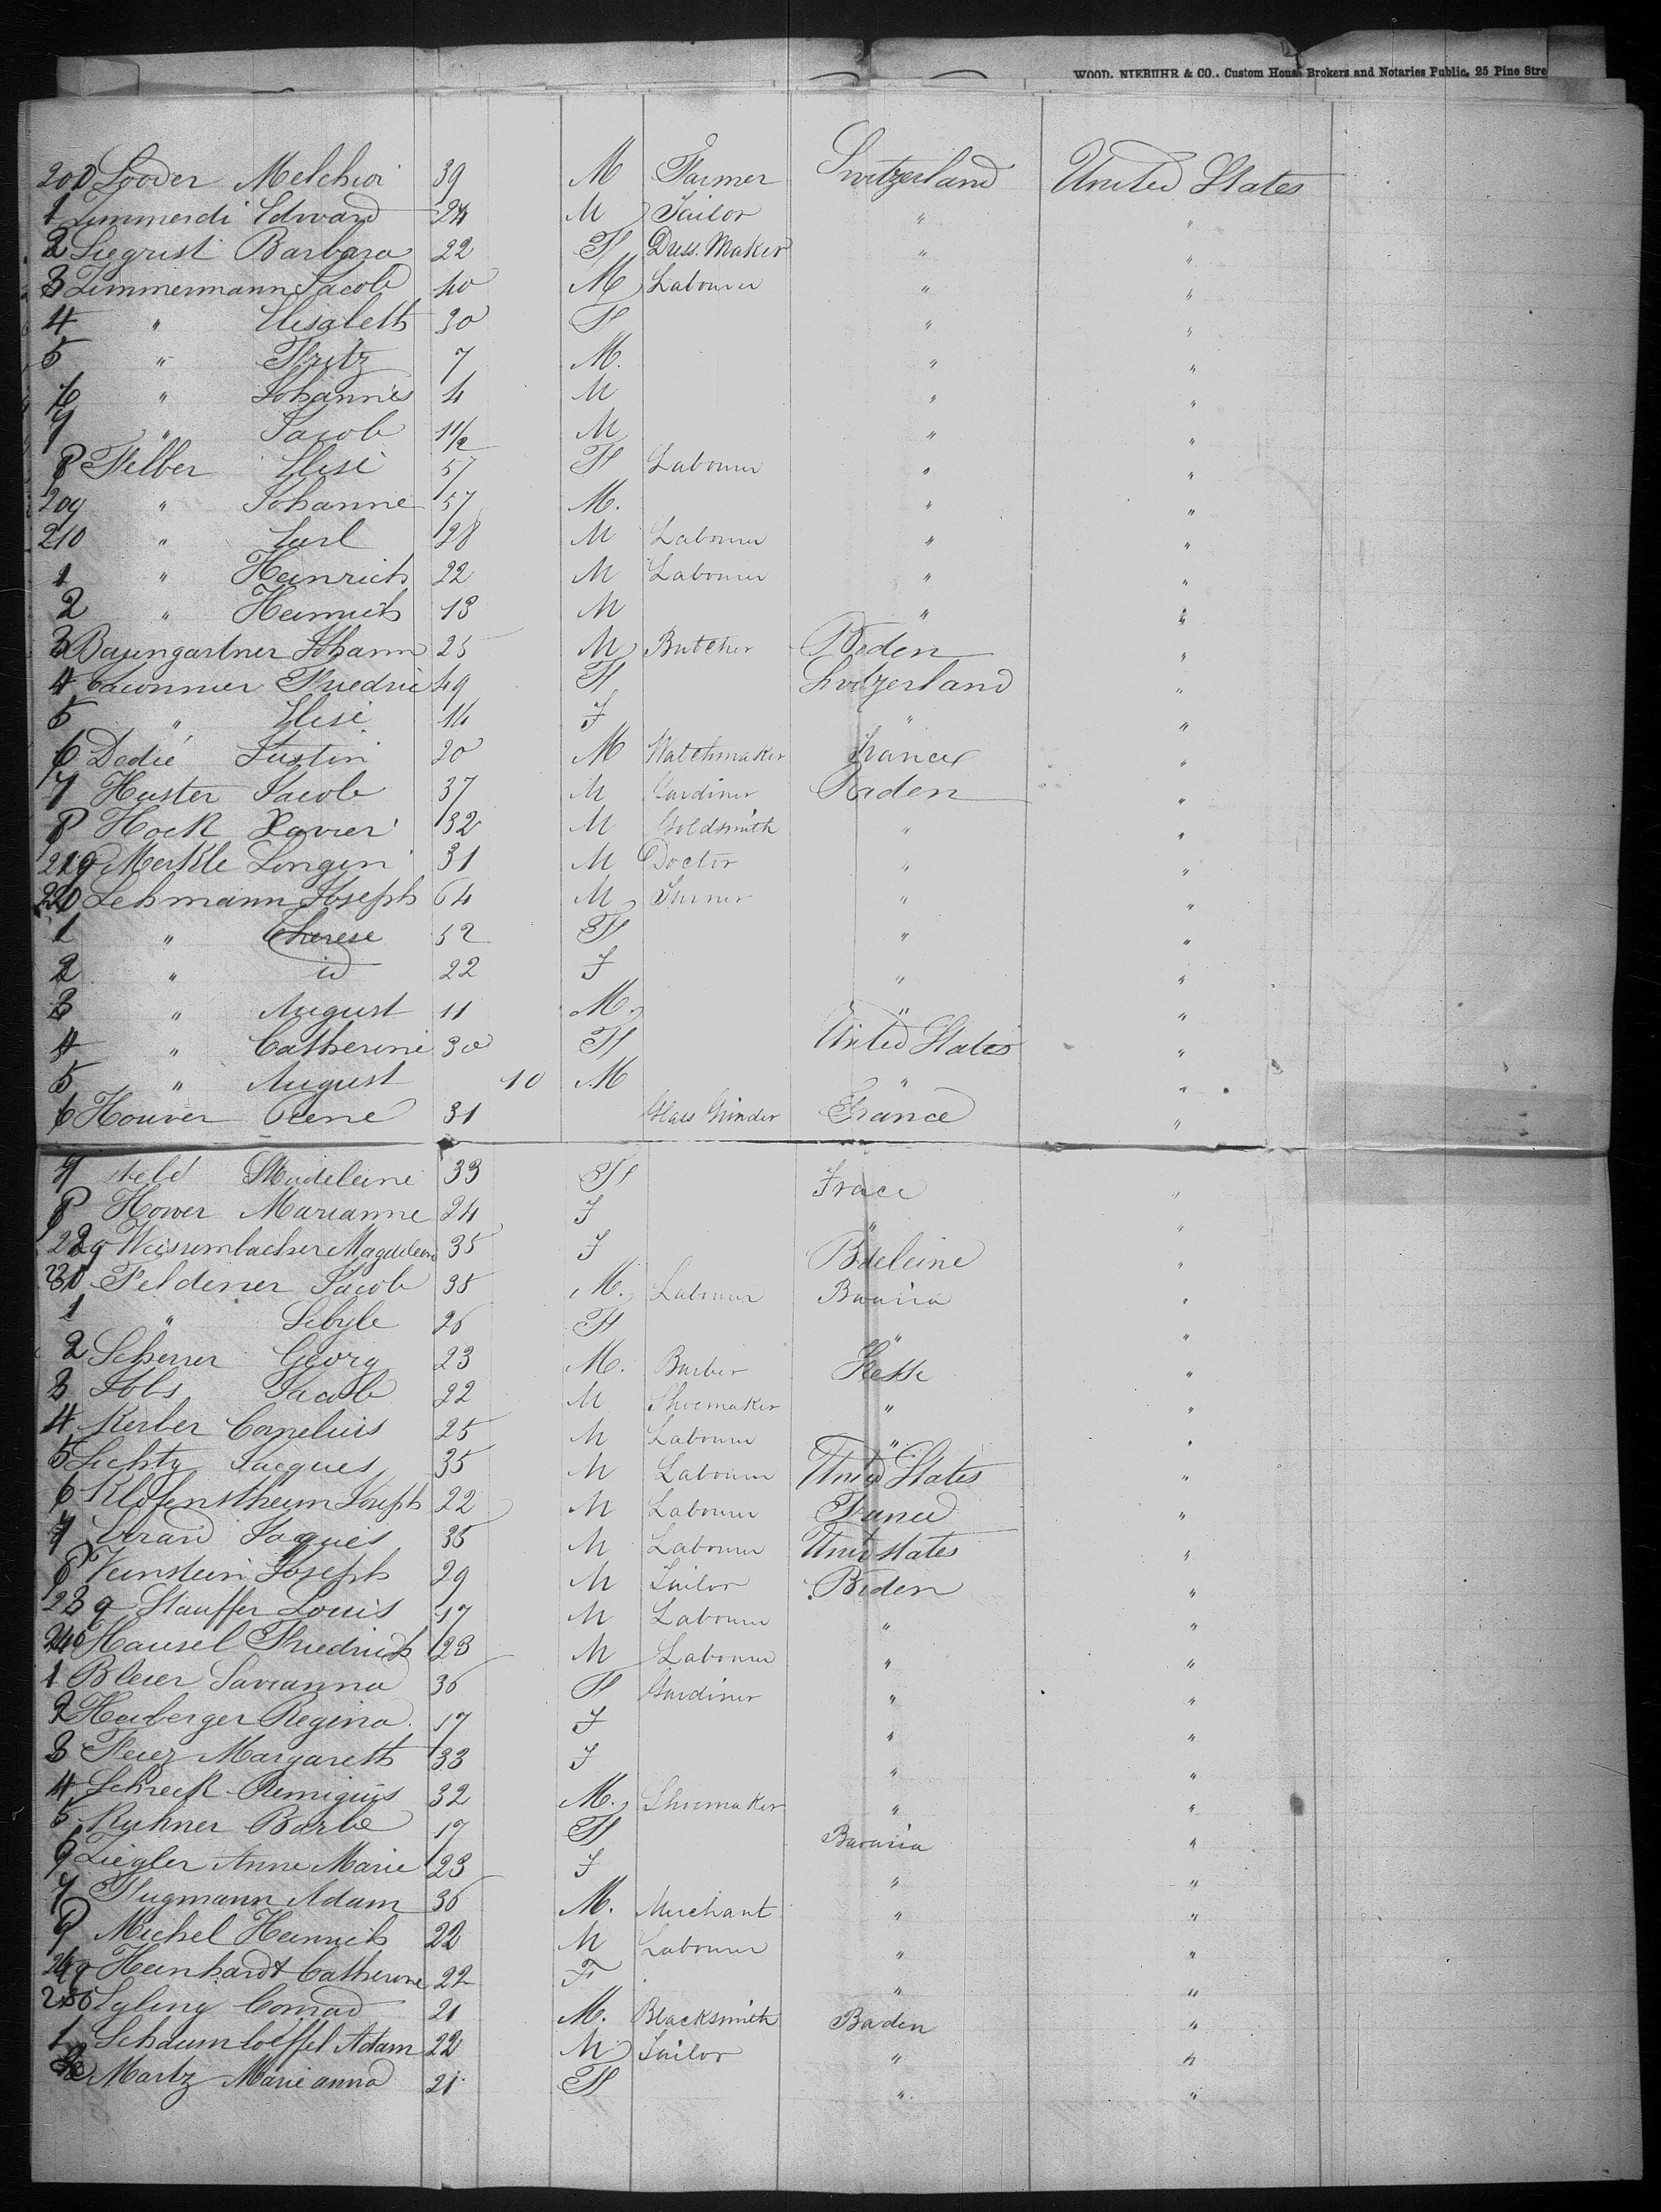 WOOD, NIEBUHR & CO., Custom House Brokers and Notaries Public, 25 Pine Stre
200 Looder Melchior 39 M Farmer Switzerland United States
1 Zimmerdi Edward 24 M Tailor " "
2 Siegrist Barbara 22 F Dress Maker " "
3 Zimmermann Jacob 40 M Labourer " "
4 " Elisabeth 30 F " "
5 " Fritz 7 M. " "
6 " Johannes 4 M " "
7 " Jacob 1 1/2 M " "
8 Felber Elise 57 F Labourer " "
209 " Johanne 57 M. " "
210 " Carl 28 M Labourer " "
1 " Heinrich 22 M Labourer " "
2 " Heinrich 13 M " "
3 Baumgartner Johann 25 M Butcher Baden "
4 Friedric 49 F Switzerland "
5 " Elise 14 F " "
6 Dedie Justin 20 M Watchmaker France "
7 Huster Jacob 37 M Gardiner Baden "
8 Hock Xavier 32 M Goldsmith " "
219 Merkle Longin 31 M Doctor " "
220 Lehmann Joseph 64 M Turner " "
1 " Therese 52 F " "
2 " id 22 F " "
3 " August 11 M. " "
4 " Catherine 30 F United States "
5 " August 10 M " "
6 Houver Rene 31 Glass Grinder France "
7 Madeleine 33 F Frace "
8 Hower Marianne 24 F " "
229 Weissembacher Magdeleine 35 F "
230 Feldener Jacob 35 M. Labourer Bavaria "
1 " Sibyle 26 F " "
2 Scherrer Georg 23 M. Barber Hesse "
3 Jacob 22 M Shoemaker " "
4 Kerber Cornelius 25 M Labourer " "
5 Lichty Jacques 35 M Labourer United States "
6 Joseph 22 M Labourer France "
7 Jaques 35 M Labourer United States "
8 Veinstein Joseph 29 M Tailor Baden "
239 Stauffer Louis 17 M Labourer " "
240 Hausel Friedrich 23 M Labourer " "
1 Bleier Savianna 36 F Gardiner " "
2 Heuberger Regina. 17 F " "
3 Feier Margareth 33 F " "
4 Schreck Remigius 32 M. Shoemaker " "
5 Kuhner Barbe 17 F Bavaria "
6 Ziegler Anne Marie 23 F " "
7 Flugmann Adam 36 M. Merchant " "
8 Michel Heinrich 22 M Labourer " "
249 Heinhardt Catherine 22 F " "
250 Conrad 21 M. Blacksmith Baden "
1 Schaumloeffel Adam 22 M Tailor " "
2 Martz Marie anna 21 F " "